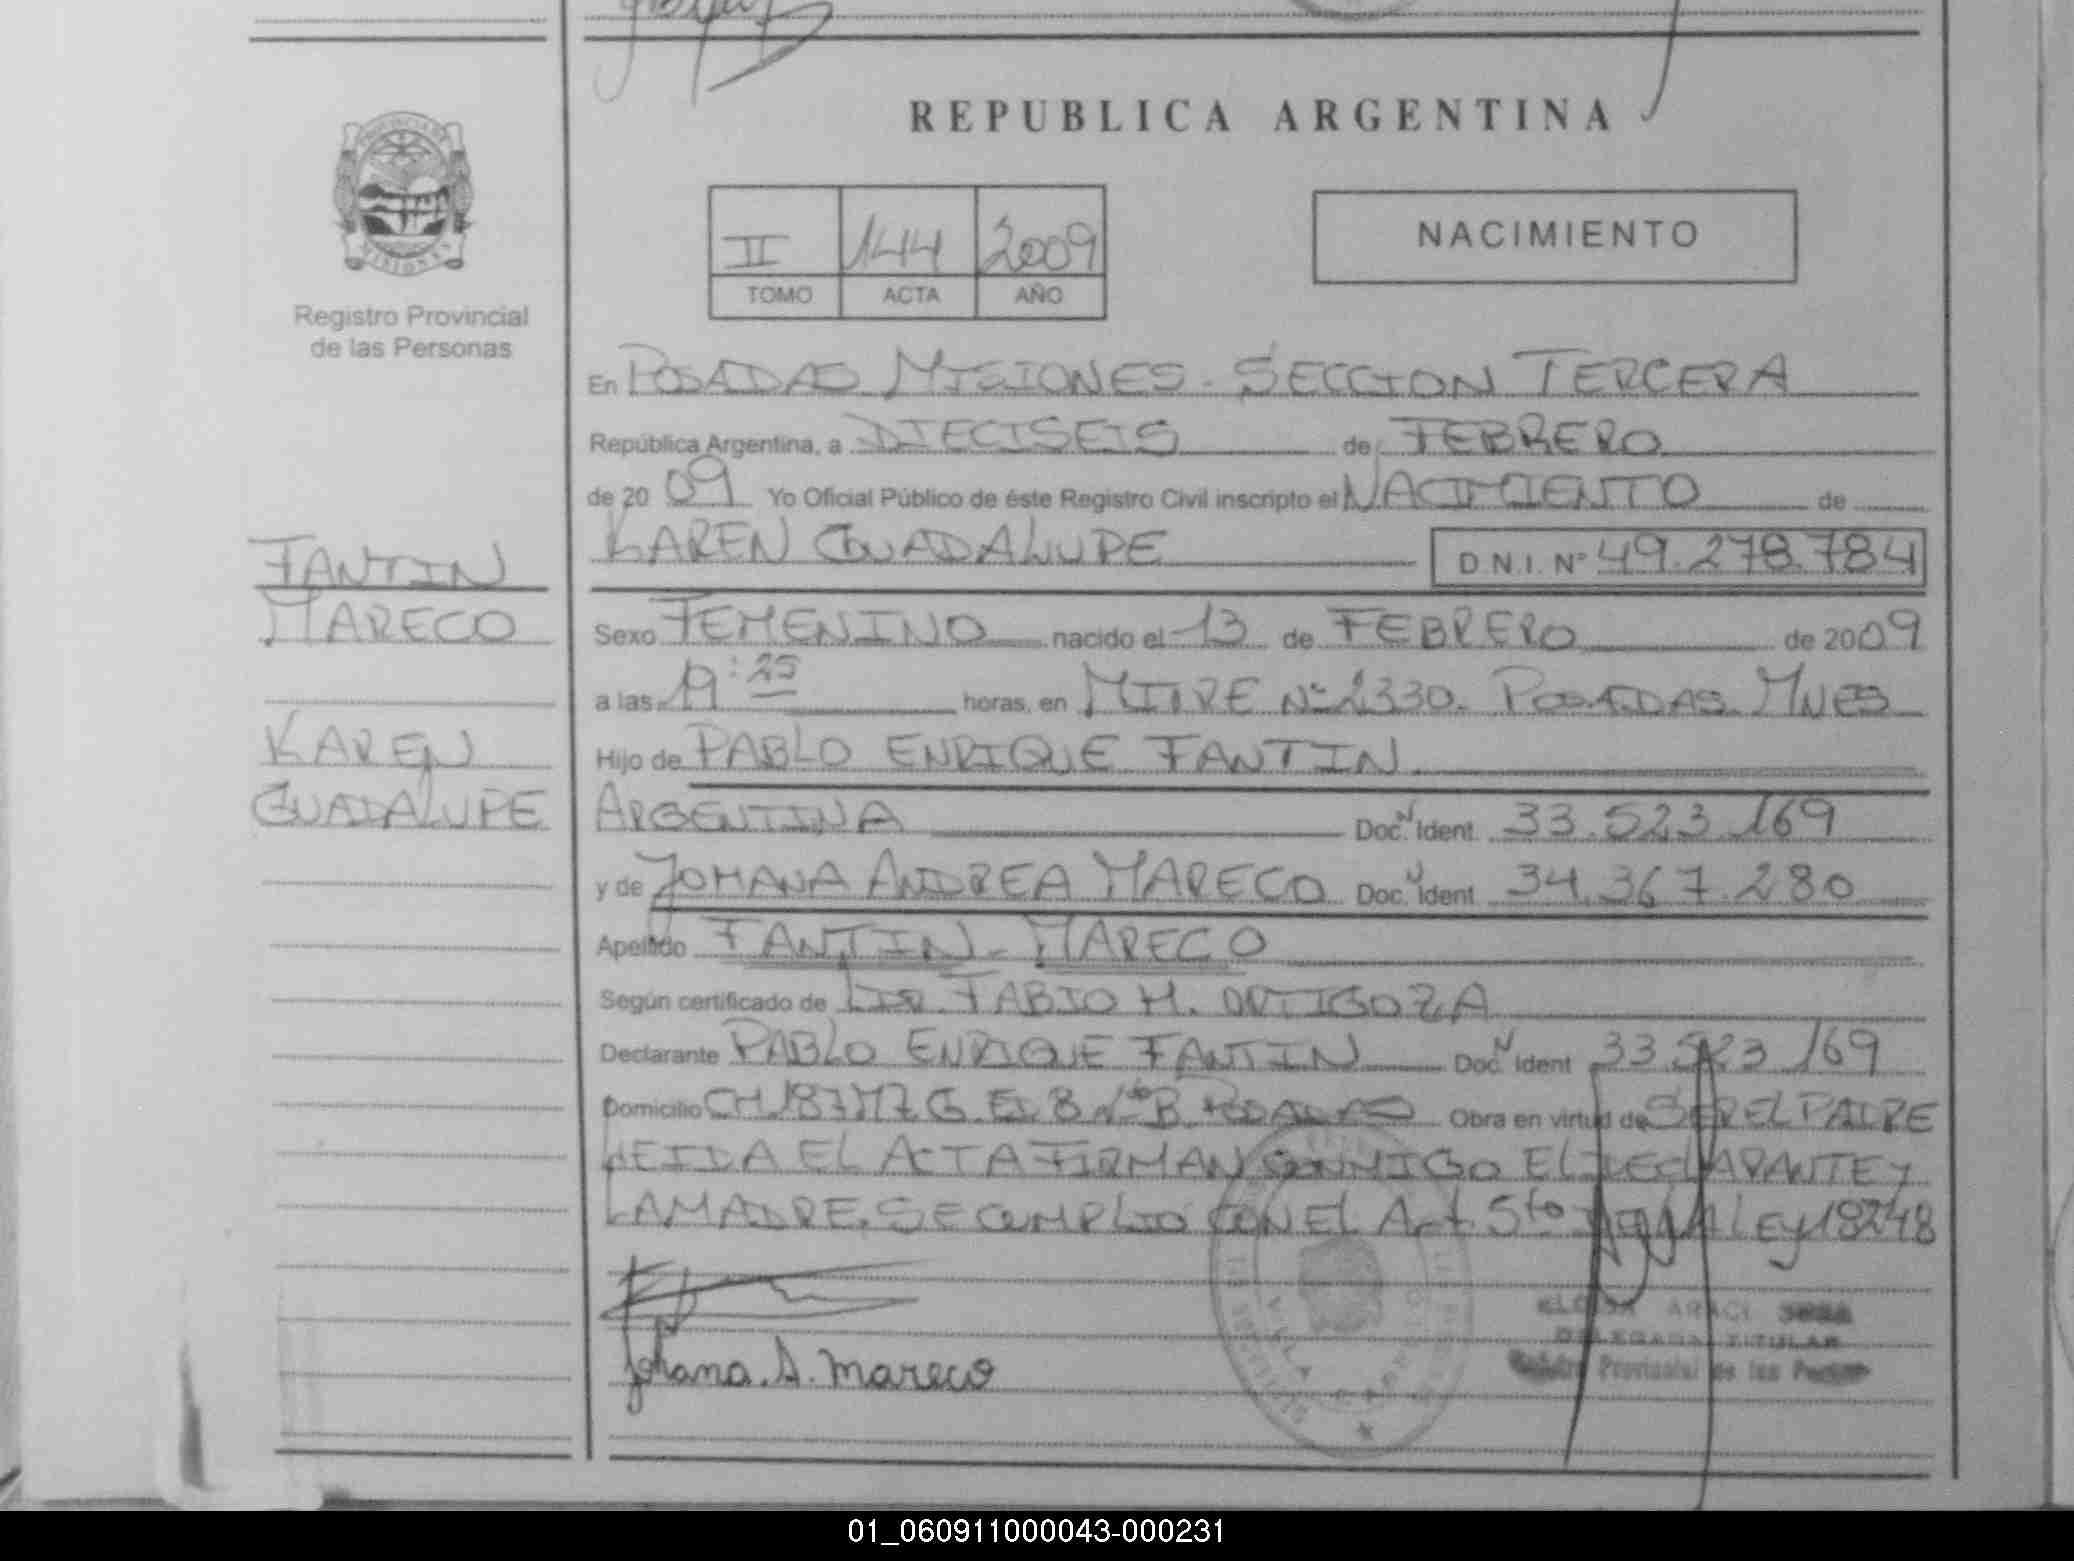 REPUBLICA ARGENTINA
PROVINCIA DE
MISIONES
Registro Provincial
de las Personas
II 144 2009
TOMO ACTA AÑO
NACIMIENTO
En POSADAS MISIONES. SECCION TERCERA
República Argentina, a DIECISEIS de FEBRERO
de 2009 Yo Oficial Público de éste Registro Civil inscripto el NACIMIENTO de
KAREN GUADALUPE D.N.I. Nº 49.278.784
FANTIN
MARECO
KAREN
GUADALUPE
Sexo FEMENINO nacido el 13 de FEBRERO de 2009
a las 19:25 horas, en MITRE Nº 2330. POSADAS. MNES
Hijo de PABLO ENRIQUE FANTIN
ARGENTINA Doc. N Ident. 33.523.169
y de JOHANA ANDREA MARECO Doc. N Ident. 34.367.280
Apellido FANTIN - MARECO
Según certificado de LIC. FABIO H. ORTIGOZA
Declarante PABLO ENRIQUE FANTIN Doc. N Ident 33.523.169
Domicilio CH 187 POSADAS Obra en virtud de SER EL PADRE
LEIDA EL ACTA FIRMAN CONMIGO EL DECLARANTE Y
LA MADRE. SE CUMPLIO CON EL Art. 5to de la Ley 18248
Johana. A. Mareco
ELOISA ARACI SOSA
DELEGADA TITULAR
Registro Provincial de las Personas
01_060911000043-000231